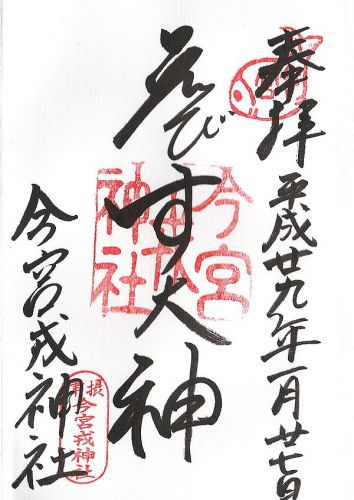 奉拝
平成廿九年一月廿七日
えびす大神
今宮戎神社
今宮戎神社
摂津
今宮戎神社